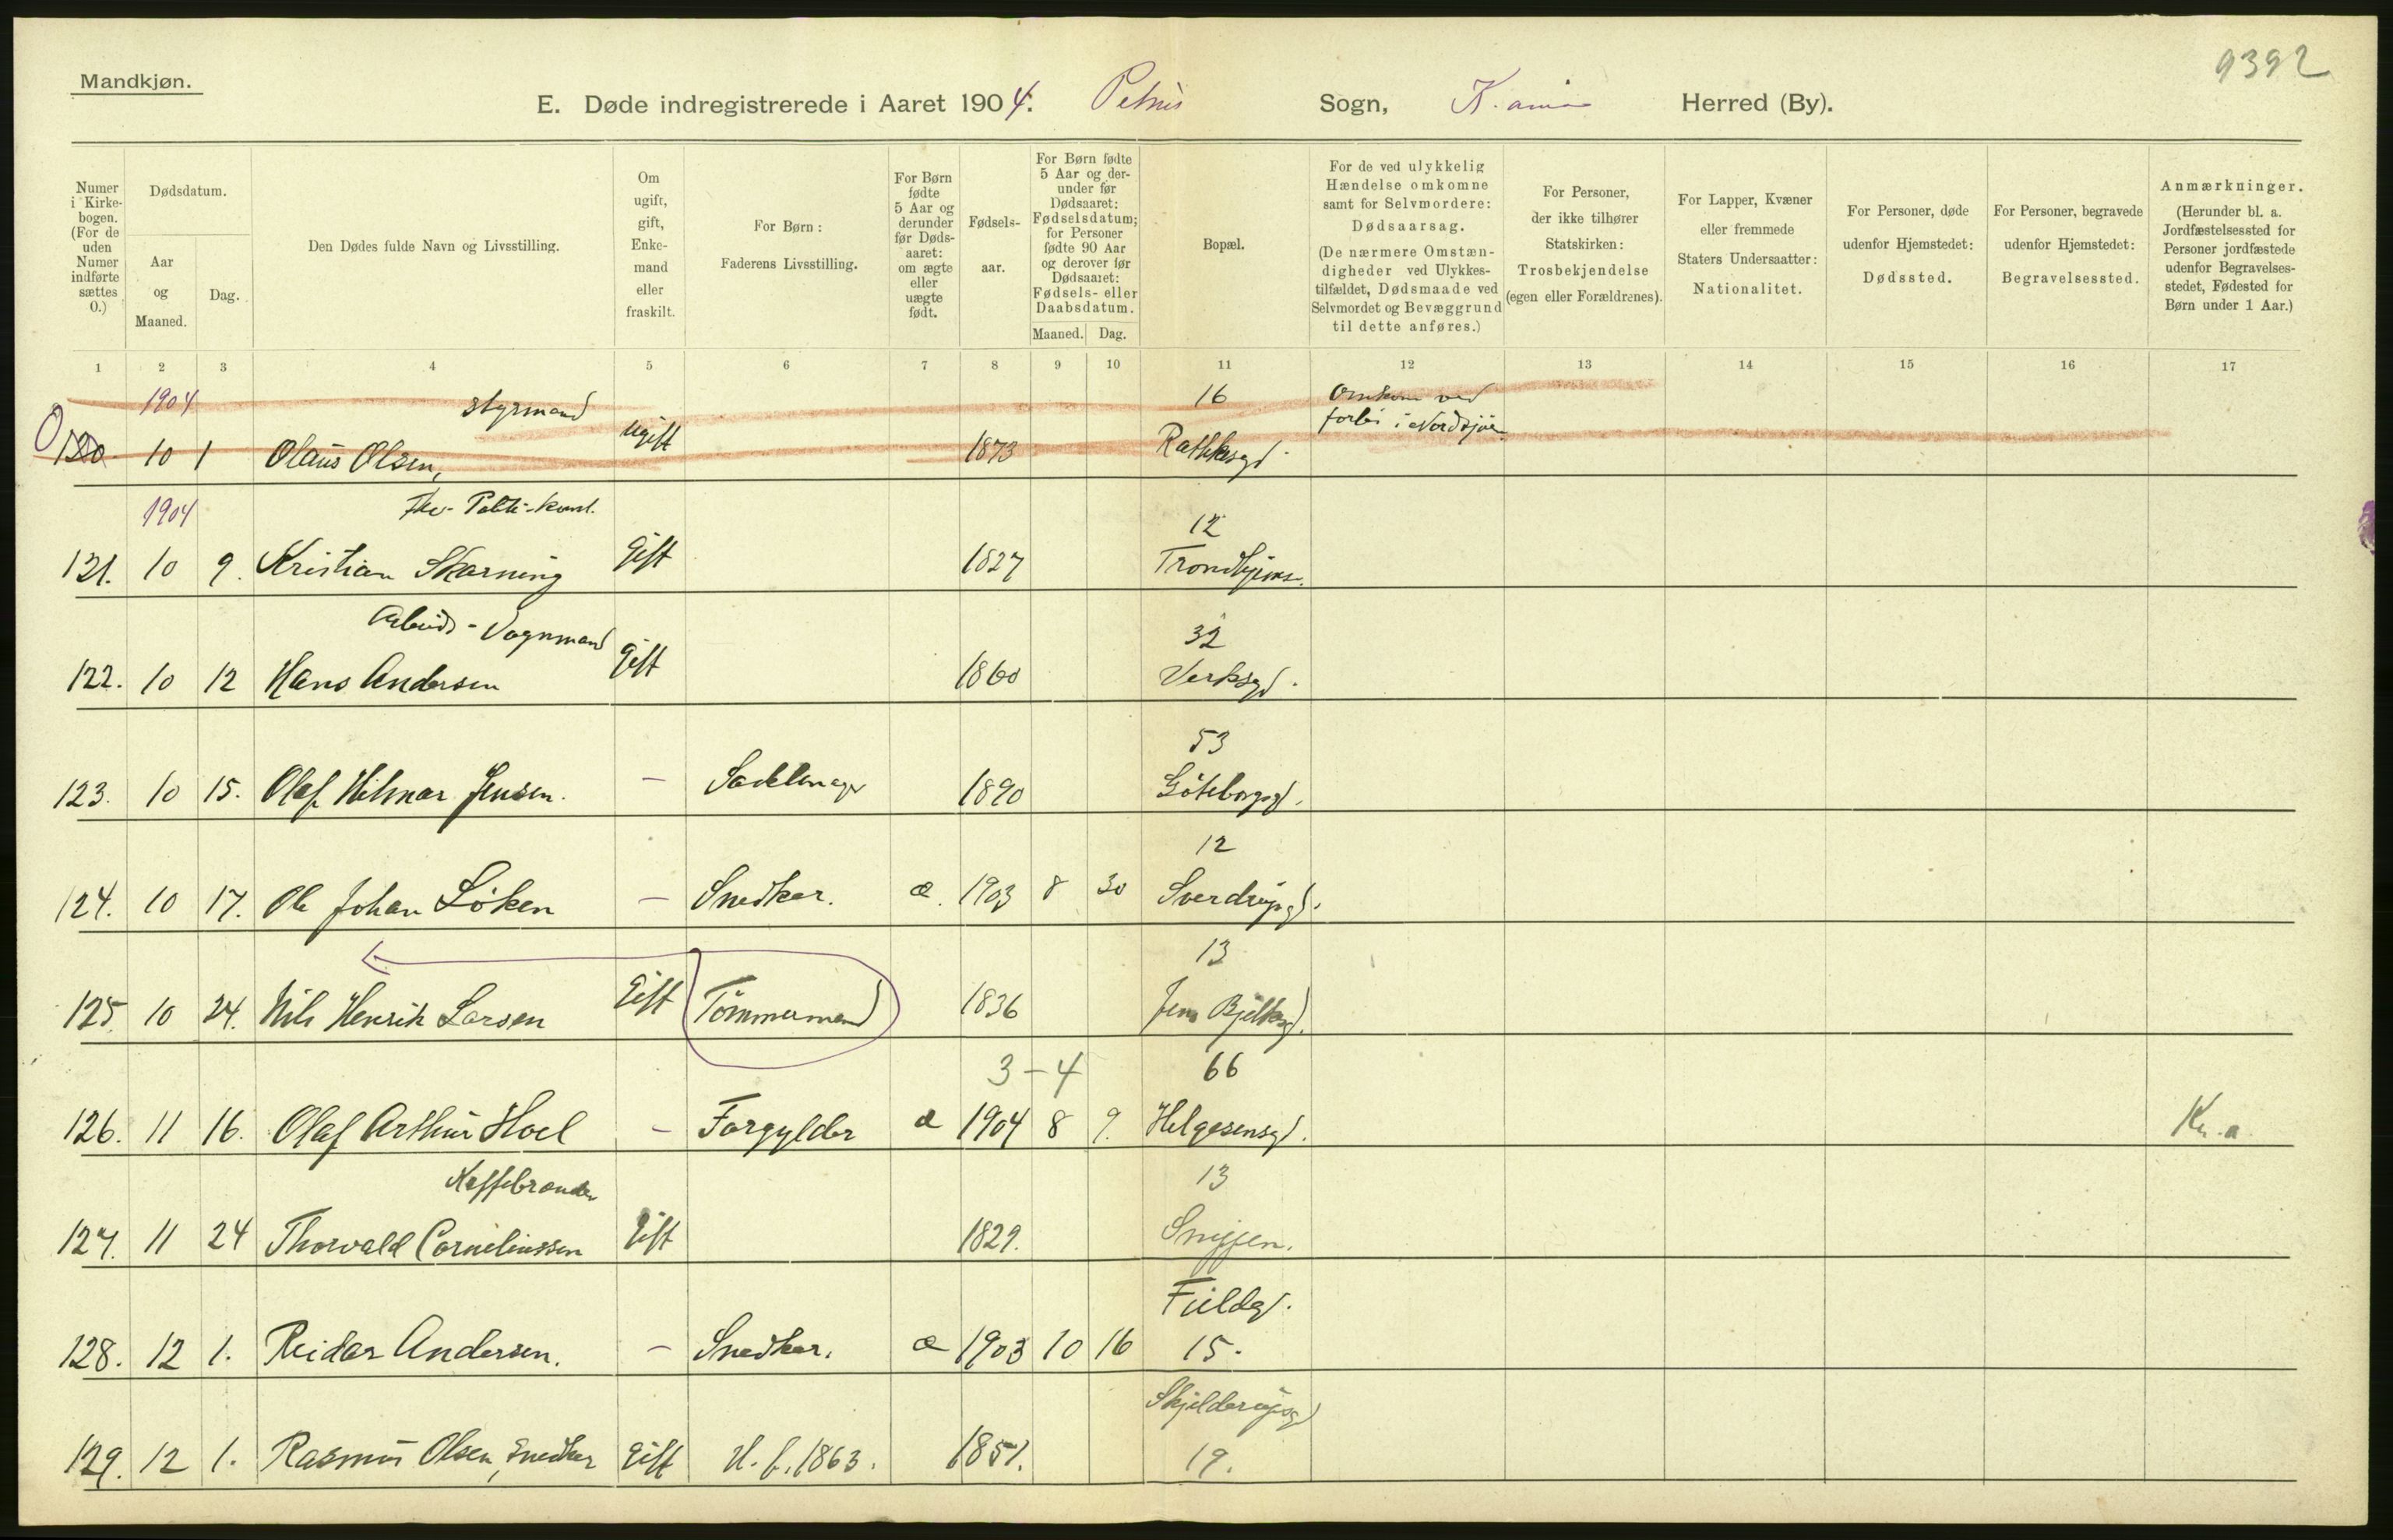 Mandkjøn.
9392
E. Døde indregistrerede i Aaret 1904. Petrus Sogn, K.ania Herred (By).
Numer i Kirkebogen. (For de uden Numer indførte sættes O.)
Dødsdatum.
Aar og Maaned.
Dag.
Den Dødes fulde Navn og Livsstilling.
Om ugift, gift, Enkemand eller fraskilt.
For Børn: Faderens Livsstilling.
For Børn fødte 5 Aar og derunder før Dødsaaret: om ægte eller uægte født.
Fødselsaar.
For Børn fødte 5 Aar og derunder før Dødsaaret: Fødselsdatum; for Personer fødte 90 Aar og derover før Dødsaaret: Fødsels- eller Daabsdatum.
Maaned. Dag.
Bopæl.
For de ved ulykkelig Hændelse omkomne samt for Selvmordere: Dødsaarsag. (De nærmere Omstændigheder ved Ulykkestilfældet, Dødsmaade ved Selvmordet og Bevæggrund til dette anføres.)
For Personer, der ikke tilhører Statskirken: Trosbekjendelse (egen eller Forældrenes).
For Lapper, Kvæner eller fremmede Staters Undersaatter: Nationalitet.
For Personer, døde udenfor Hjemstedet: Dødssted.
For Personer, begravede udenfor Hjemstedet: Begravelsessted.
Anmærkninger. (Herunder bl. a. Jordfæstelsessted for Personer jordfæstede udenfor Begravelsesstedet, Fødested for Børn under 1 Aar.)
1 2 3 4 5 6 7 8 9 10 11 12 13 14 15 16 17
1904 Styrmand 16 Omkom ved
forlis i Nordsjøen
0 120 10 1 Olaus Olsen, Ugift 1873 Rathkesgd.
1904 12
121. 10 9. Kristian Skarning Gift 1827 Trondhjems.
Arbeids-Vognmand 32
122. 10 12 Hans Andersen Gift 1860 Verksgd.
53
123. 10 15. Olaf Hilmar Jensen. – Sadelmager 1890 Göteborggd.
12
124. 10 17. Ole Johan Löken – Snedker. æ. 1903 8 30 Sverdrupsgd.
13
125. 10 24. Nils Henrik Larsen Gift Tömmermand 1836 Jens Bjelkesgd.
3-4 66
126. 11 16. Olaf Arthur Hoel – Forgylder æ 1904 8 9. Helgesensgd. Kr.a
Kaffebrænder 13
127. 11 24 Thorvald Corneliussen Gift 1829. Snippen.
Fieldgd.
128. 12 1. Reidar Andersen. – Snedker. æ 1903 10 16 15.
Skjelderupsgd
129. 12 1. Rasmus Olsen, Snedker Gift H. f. 1863. 1851. 19.